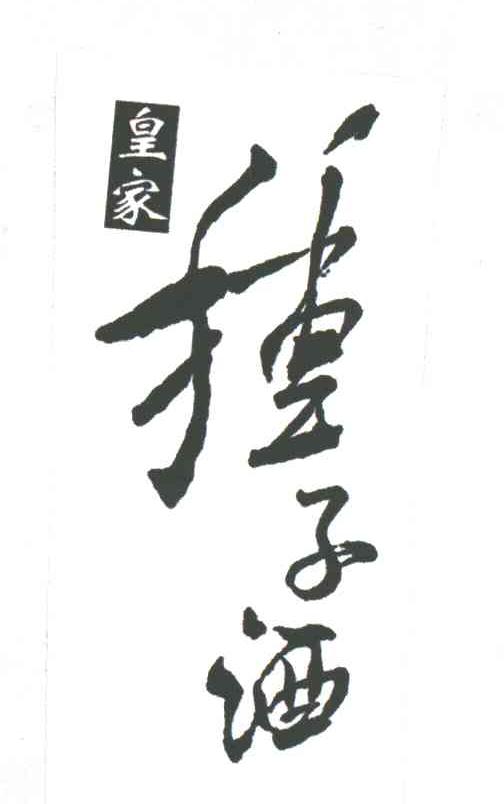 皇家
種子酒